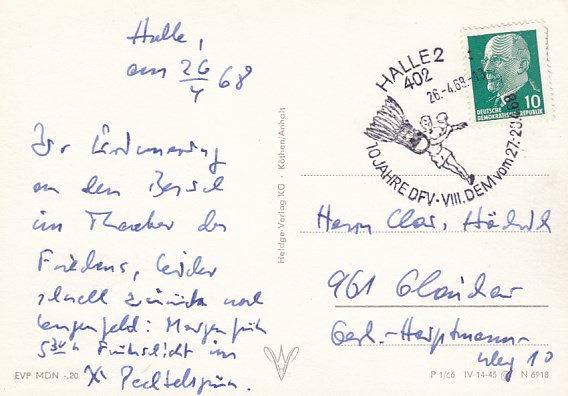 Halle,
am 26/4 68
Zur Erinnerung
an den Besuch
im Theater des
Friedens, leider
schnell zurück nach
Lengenfeld: Morgen früh
5 30 h Frühschicht im
EVP MDN -,20
Heldge-Verlag KG · Köthen/Anhalt
HALLE 2
402
26.-4.68.-
10 JAHRE DFV · VIII. DEM vom 27.-
DEUTSCHE
DEMOKRATISCHE REPUBLIK
10
Herrn Claus Hädrich
961 Glauchau
Gerh.-Hauptmann-
weg 10
P 1/66 IV-14-45 N 6918